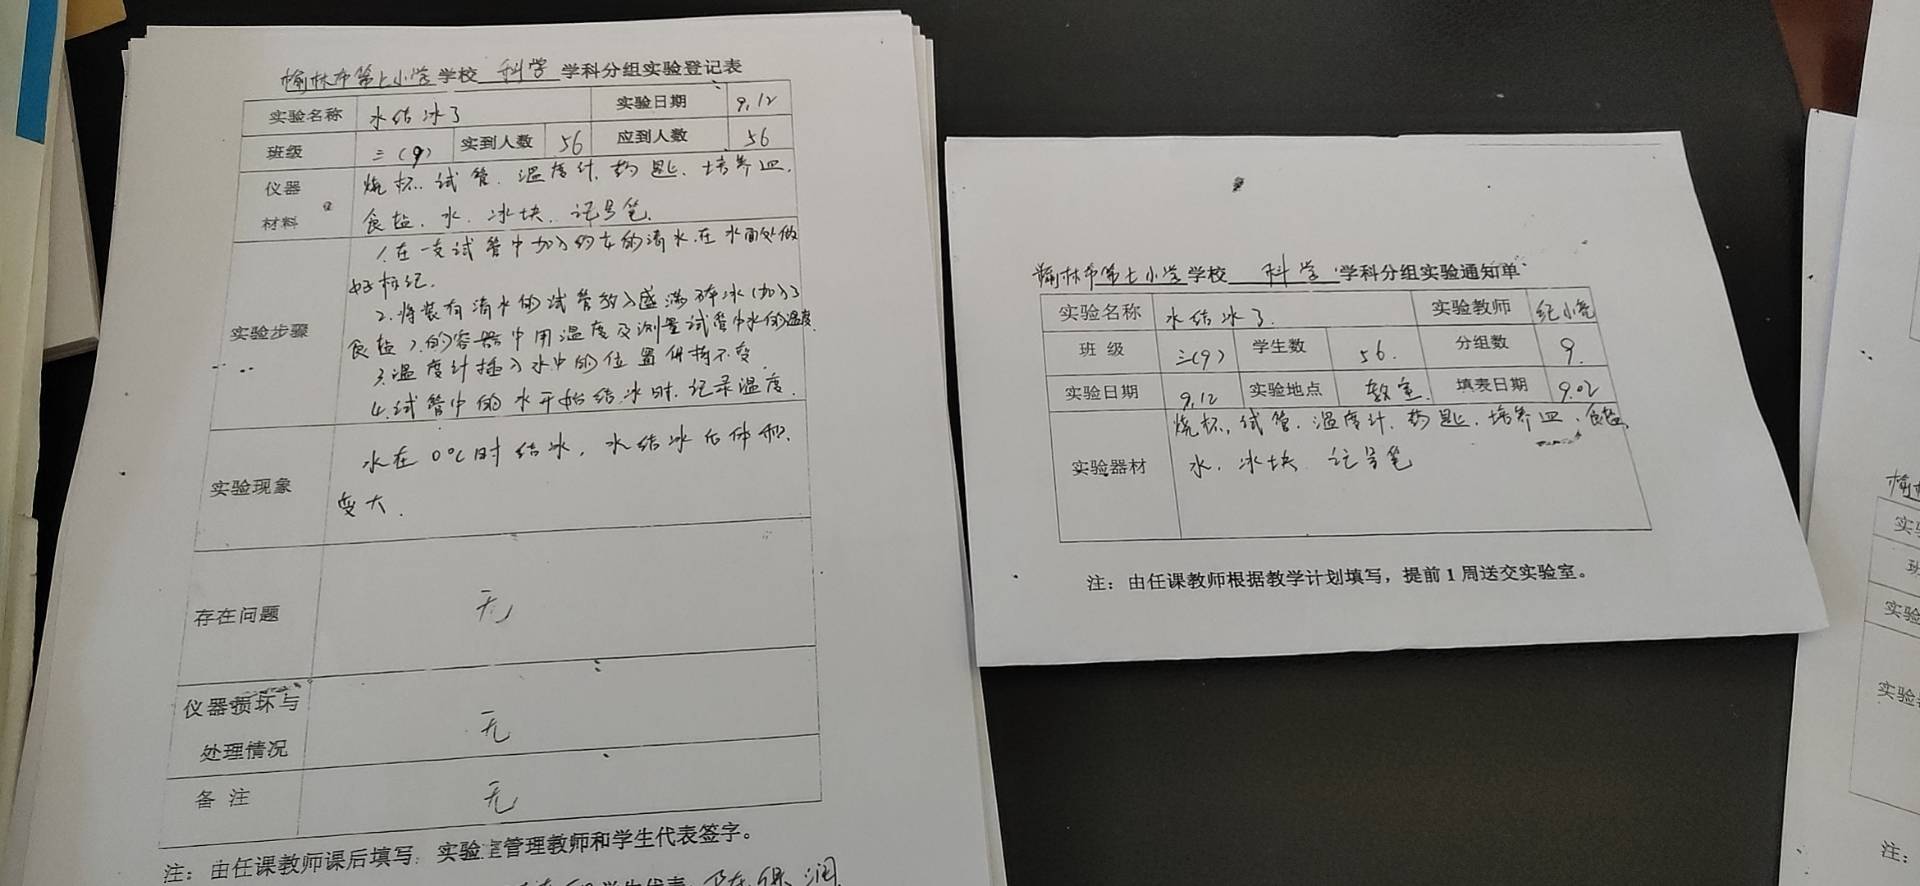 榆林市第七小学学校 科学 学科分组实验登记表
实验名称 水结冰了 实验日期 9.12
班级 三(9) 实到人数 56 应到人数 56
仪器 烧杯、试管、温度计、药匙、培养皿、
材料 食盐、水、冰块、记号笔.
1.在一支试管中加入约 的清水.在水面处做
好标记.
2.将装有清水的试管放入盛满碎冰(加入了
实验步骤 食盐)的容器中用温度及测量试管中水的温度.
3.温度计插入水中的位置保持不变
4.试管中的水开始结冰时.记录温度.
水在0℃时结冰,水结冰后体积
实验现象
变大.
存在问题 无
仪器损坏与
处理情况 无
备 注 无
注:由任课教师课后填写,实验室管理教师和学生代表签字。
学生代表
榆林市第七小学学校 科学 学科分组实验通知单
实验名称 水结冰了. 实验教师 纪小亮
班 级 三(9) 学生数 56. 分组数 9.
实验日期 9.12 实验地点 教室. 填表日期 9.02
烧杯、试管、温度计、药匙、培养皿、食盐、
实验器材 水、冰块 记号笔
注:由任课教师根据教学计划填写,提前1周送交实验室。
榆林
实验
班
实验
实验
注: